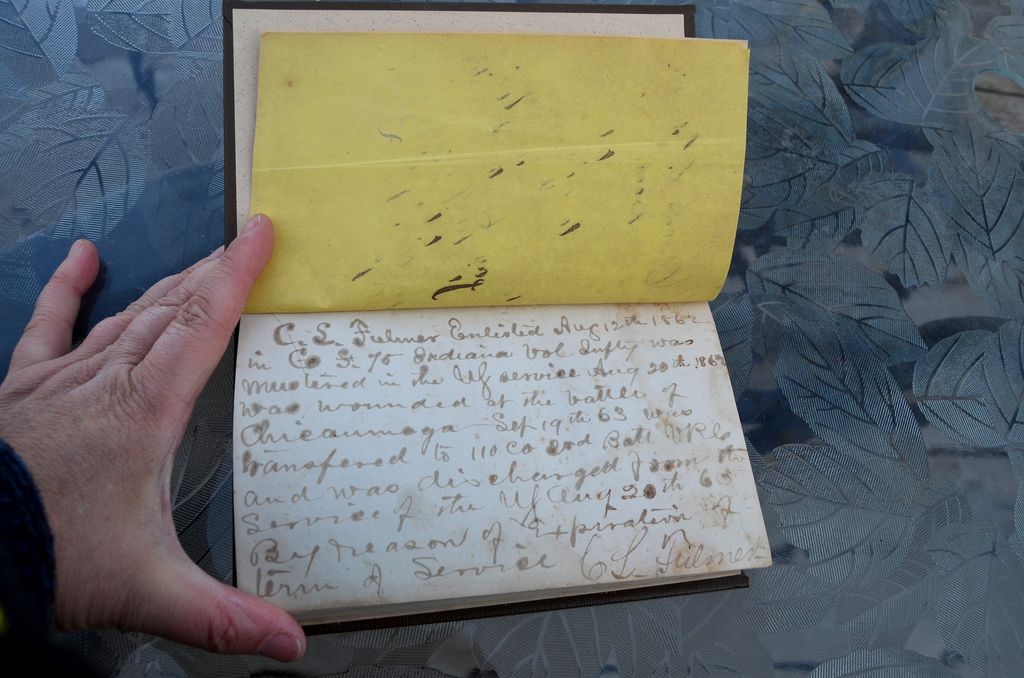 C. L. Fulmer Enlisted Aug 12th 1862
in Co I. 75 Indiana Vol Infty was
mustered in the US service Aug 20th 1862
was wounded at the battle of
Chicaumoga Sep 19th 63 was
transfered to 110 Co 2nd Batt VRC
and was discharged from the
Service of the US Aug 20th 65
By reason of Expiration of
term of Service C L Fulmer